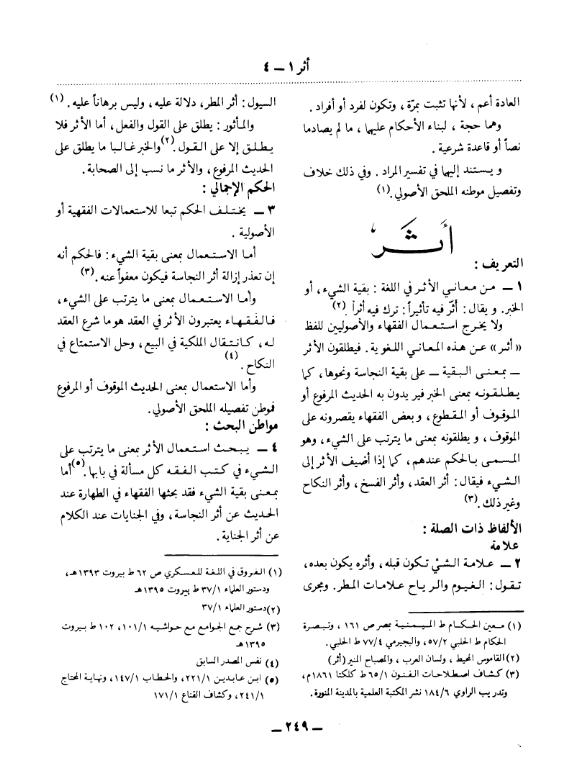 أثر ١ – ٤
العادة أعم ، لأنها تثبت بمرّة ، وتكون لفرد أو أفراد .
وهما حجة ، لبناء الأحكام عليها ، ما لم يصادما
نصاً أو قاعدة شرعية .
و يستند إليها في تفسير المراد . وفي ذلك خلاف
وتفصيل موطنه الملحق الأصولي . (١)
أثر
التعريف :
١ – من معاني الأثر في اللغة : بقية الشيء ، أو
الخبر . و يقال : أثّر فيه تأثيراً : ترك فيه أثراً . (٢)
ولا يخرج استعمال الفقهاء والأصوليين للفظ
«أثر» عن هذه المعاني اللغوية . فيطلقون الأثر
– بمعنى البقية – على بقية النجاسة ونحوها ، كما
يطلقونه بمعنى الخبر فير يدون به الحديث المرفوع أو
الموقوف أو المقطوع ، و بعض الفقهاء يقصرونه على
الموقوف ، و يطلقونه بمعنى ما يترتب على الشيء ، وهو
المسمى بالحكم عندهم ، كما إذا أضيف الأثر إلى
الشيء فيقال : أثر العقد ، وأثر الفسخ ، وأثر النكاح
وغير ذلك . (٣)
الألفاظ ذات الصلة :
علامة
٢ – علامة الشئ تكون قبله ، وأثره يكون بعده ،
تقول : الغيوم والر ياح علامات المطر . ومجرى
(١) معين الحكام ط الميمنية بمصر ص ١٦١ ، وتبصرة
الحكام ط الحلبي ٥٧/٢ ، والبجيرمي ٧٧/٤ ط الحلبي .
(٢) القاموس المحيط ، ولسان العرب ، والمصباح المنير (أثر)
(٣) كشاف اصطلاحات الفنون ٦٥/١ ط كلكتا ١٨٦١م ،
وتدريب الراوي ١٨٤/٦ نشر المكتبة العلمية بالمدينة المنورة .
السيول : أثر المطر ، دلالة عليه ، وليس برهاناً عليه . (١)
والمأثور : يطلق على القول والفعل ، أما الأثر فلا
يطلق إلا على القول . (٢) والخبر غالبا ما يطلق على
الحديث المرفوع ، والأثر ما نسب إلى الصحابة .
الحكم الإجمالي :
٣ – يختلف الحكم تبعا للاستعمالات الفقهية أو
الأصولية .
أما الاستعمال بمعنى بقية الشيء : فالحكم أنه
إن تعذر إزالة أثر النجاسة فيكون معفواً عنه . (٣)
وأما الاستعمال بمعنى ما يترتب على الشيء ،
فالفقهاء يعتبرون الأثر في العقد هو ما شرع العقد
له ، كانتقال الملكية في البيع ، وحل الاستمتاع في
النكاح . (٤)
وأما الاستعمال بمعنى الحديث الموقوف أو المرفوع
فموطن تفصيله الملحق الأصولي .
مواطن البحث :
٤ – يبحث استعمال الأثر بمعنى ما يترتب على
الشيء في كتب الفقه كل مسألة في بابها . (٥) أما
بمعنى بقية الشيء فقد بحثها الفقهاء في الطهارة عند
الحديث عن أثر النجاسة ، وفي الجنايات عند الكلام
عن أثر الجناية .
(١) الفروق في اللغة للعسكري ص ٦٢ ط بيروت ١٣٩٣هـ ،
ودستور العلماء ٣٧/١ ط بيروت ١٣٩٥هـ
(٢) دستور العلماء ٣٧/١
(٣) شرح جمع الجوامع مع حواشيه ١٠١/١ ، ١٠٢ ط بيروت
١٣٩٥هـ
(٤) نفس المصدر السابق
(٥) ابن عابدين ٢٢١/١ ، والحطاب ١٤٧/١ ، ونهاية المحتاج
٢٤١/١ ، وكشاف القناع ١٧١/١
– ٢٤٩ –